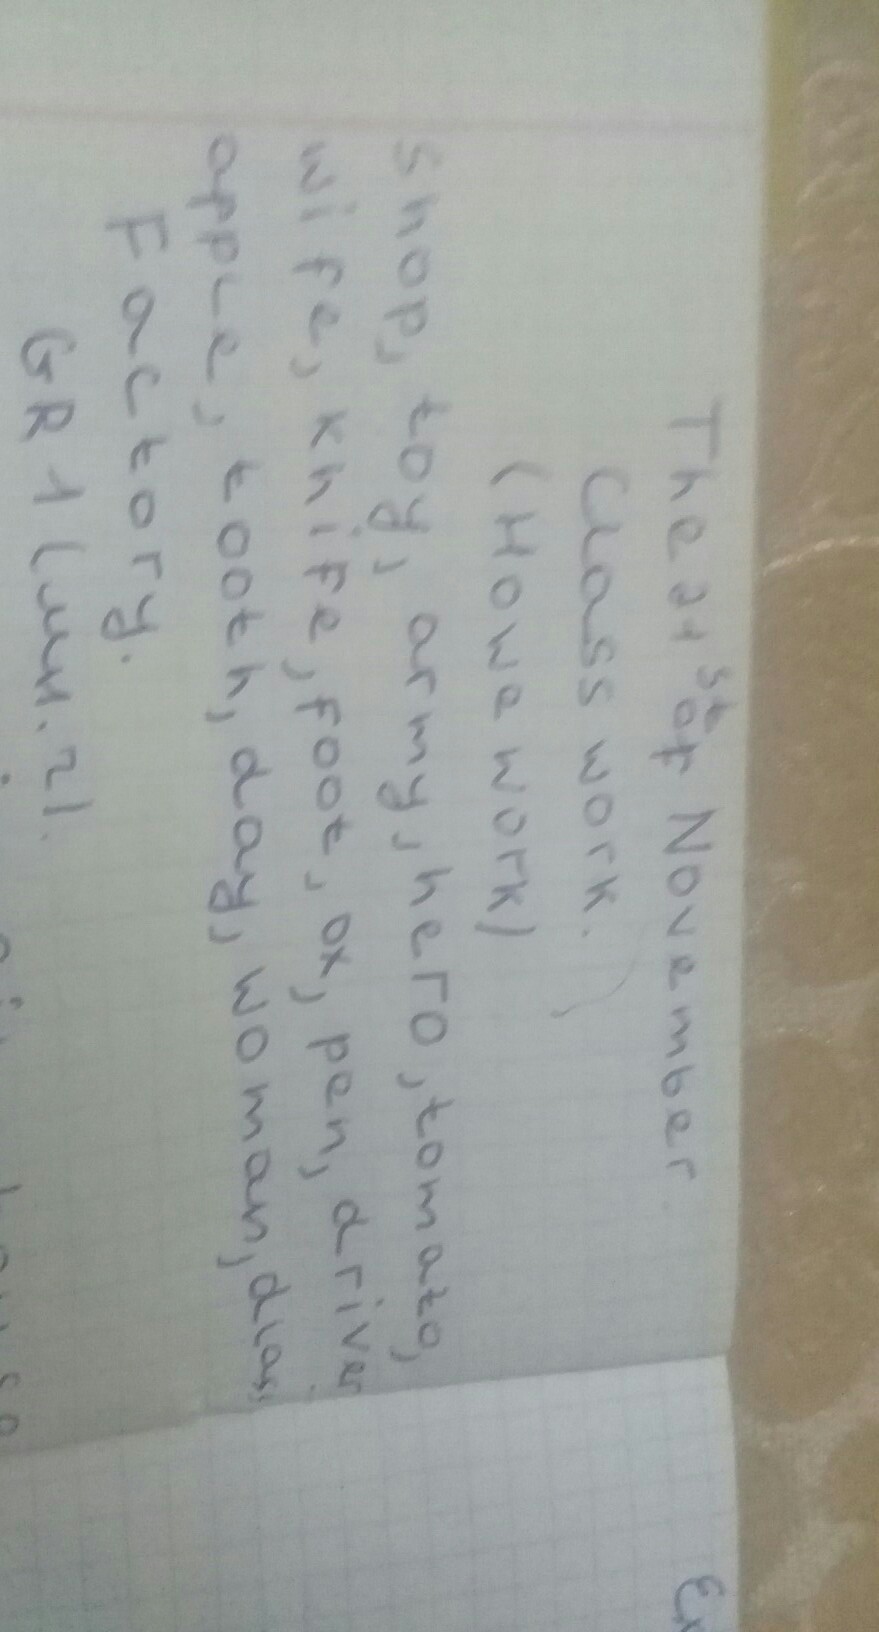 The 21st of November
Class work.
(Howe work)
shop, toy, army, hero, tomato,
wife, knife, foot, ox, pen, driver
apple, tooth, day, woman,
Factory.
GR 1 (мн. 2).